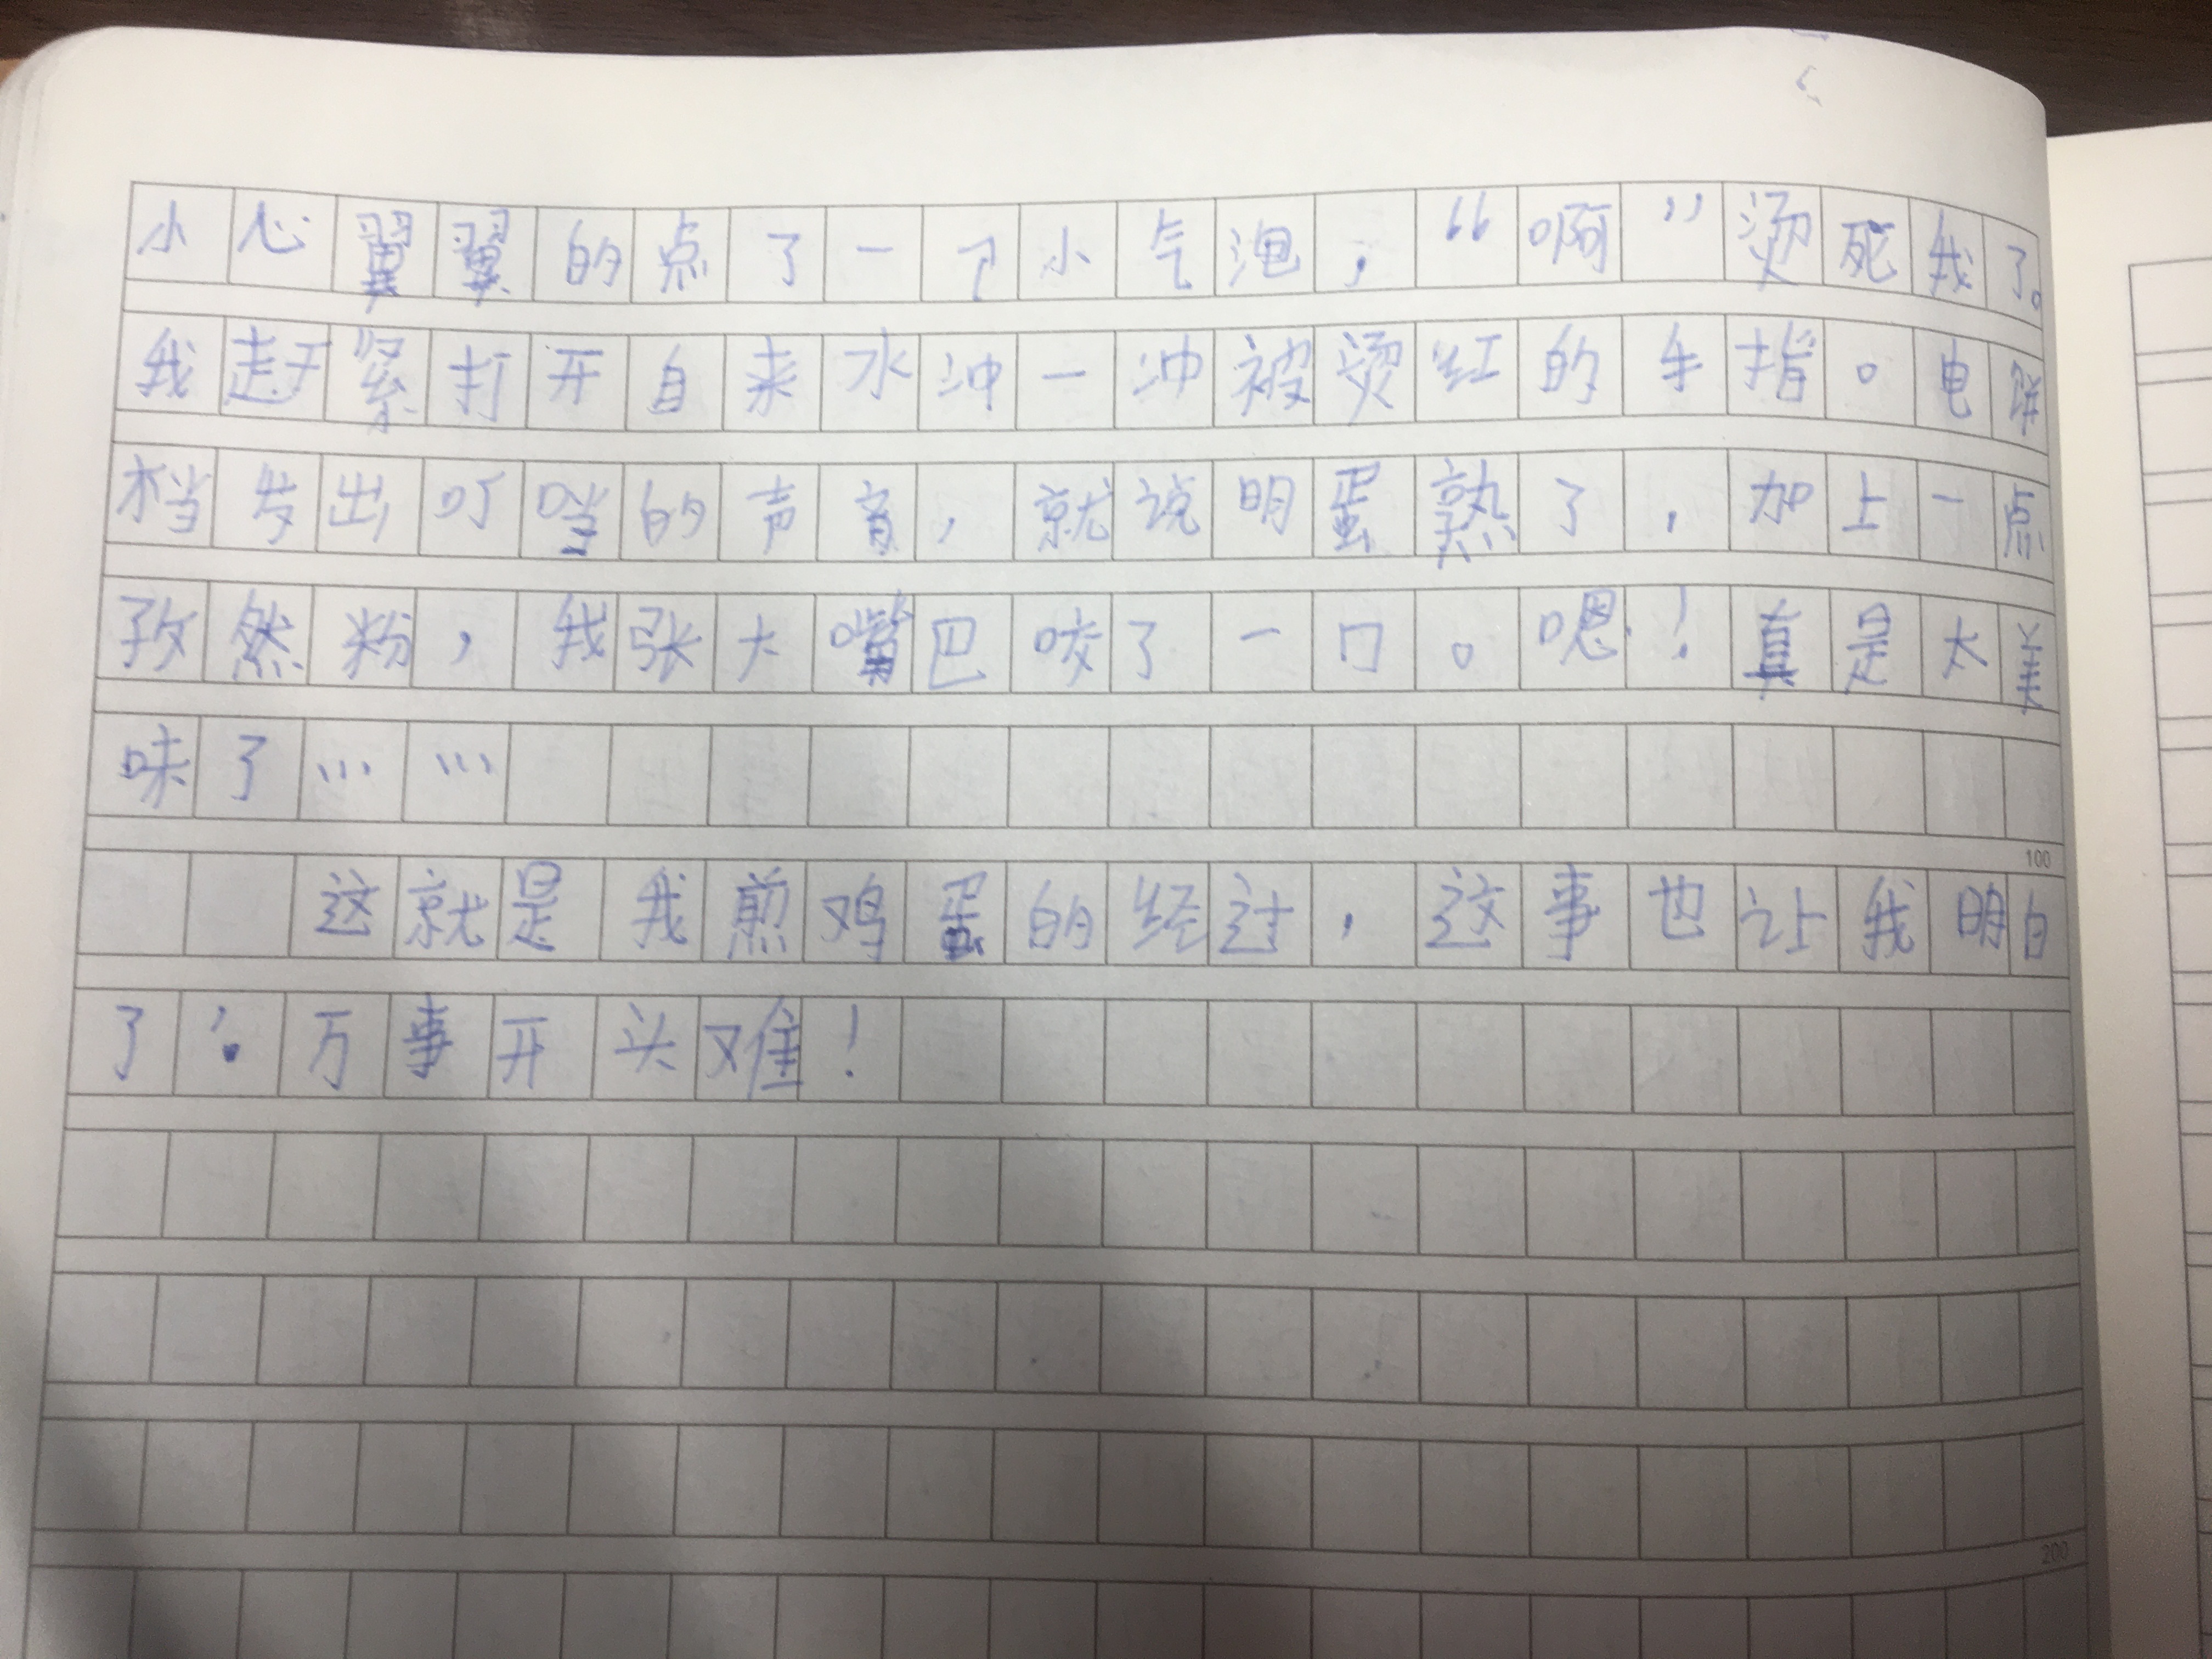 小心翼翼的点了一个小气泡，“啊”烫死我了。
我赶紧打开自来水冲一冲被烫红的手指。电饼
档发出叮当的声音，就说明蛋熟了，加上一点
孜然粉，我张大嘴巴咬了一口。嗯！真是太美
味了……
100
这就是我煎鸡蛋的经过，这事也让我明白
了：万事开头难！
200